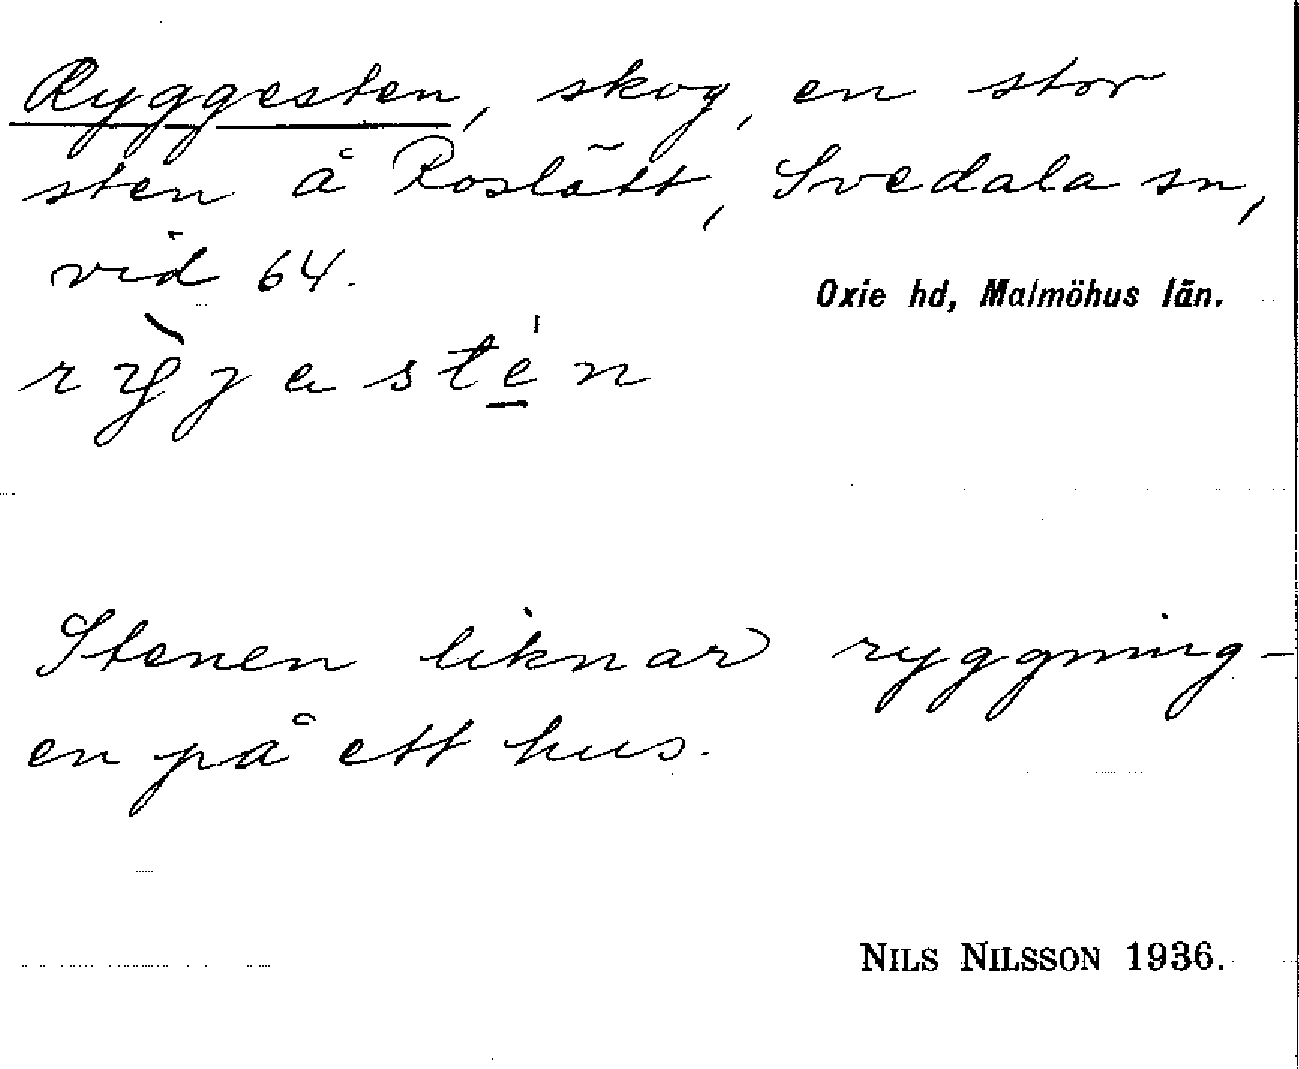 Ryggesten, skog, en stor
sten å Roslätt, Svedala sn,
vid 64.
Oxie hd, Malmöhus län.
rỳjasté̱n
Stenen liknar ryggning-
en på ett hus.
NILS NILSSON 1936.